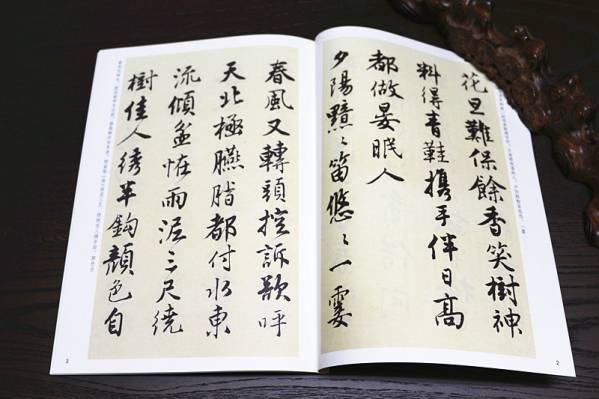 花旦難保餘香笑樹神
料得青鞋携手伴日高
都做晏眠人
夕陽黯〻笛悠〻一霎
春風又轉頭控訴欲呼
天北極臙脂都付水東
流傾盆怪雨泥三尺繞
樹佳人綉半鈎顔色自
2
3